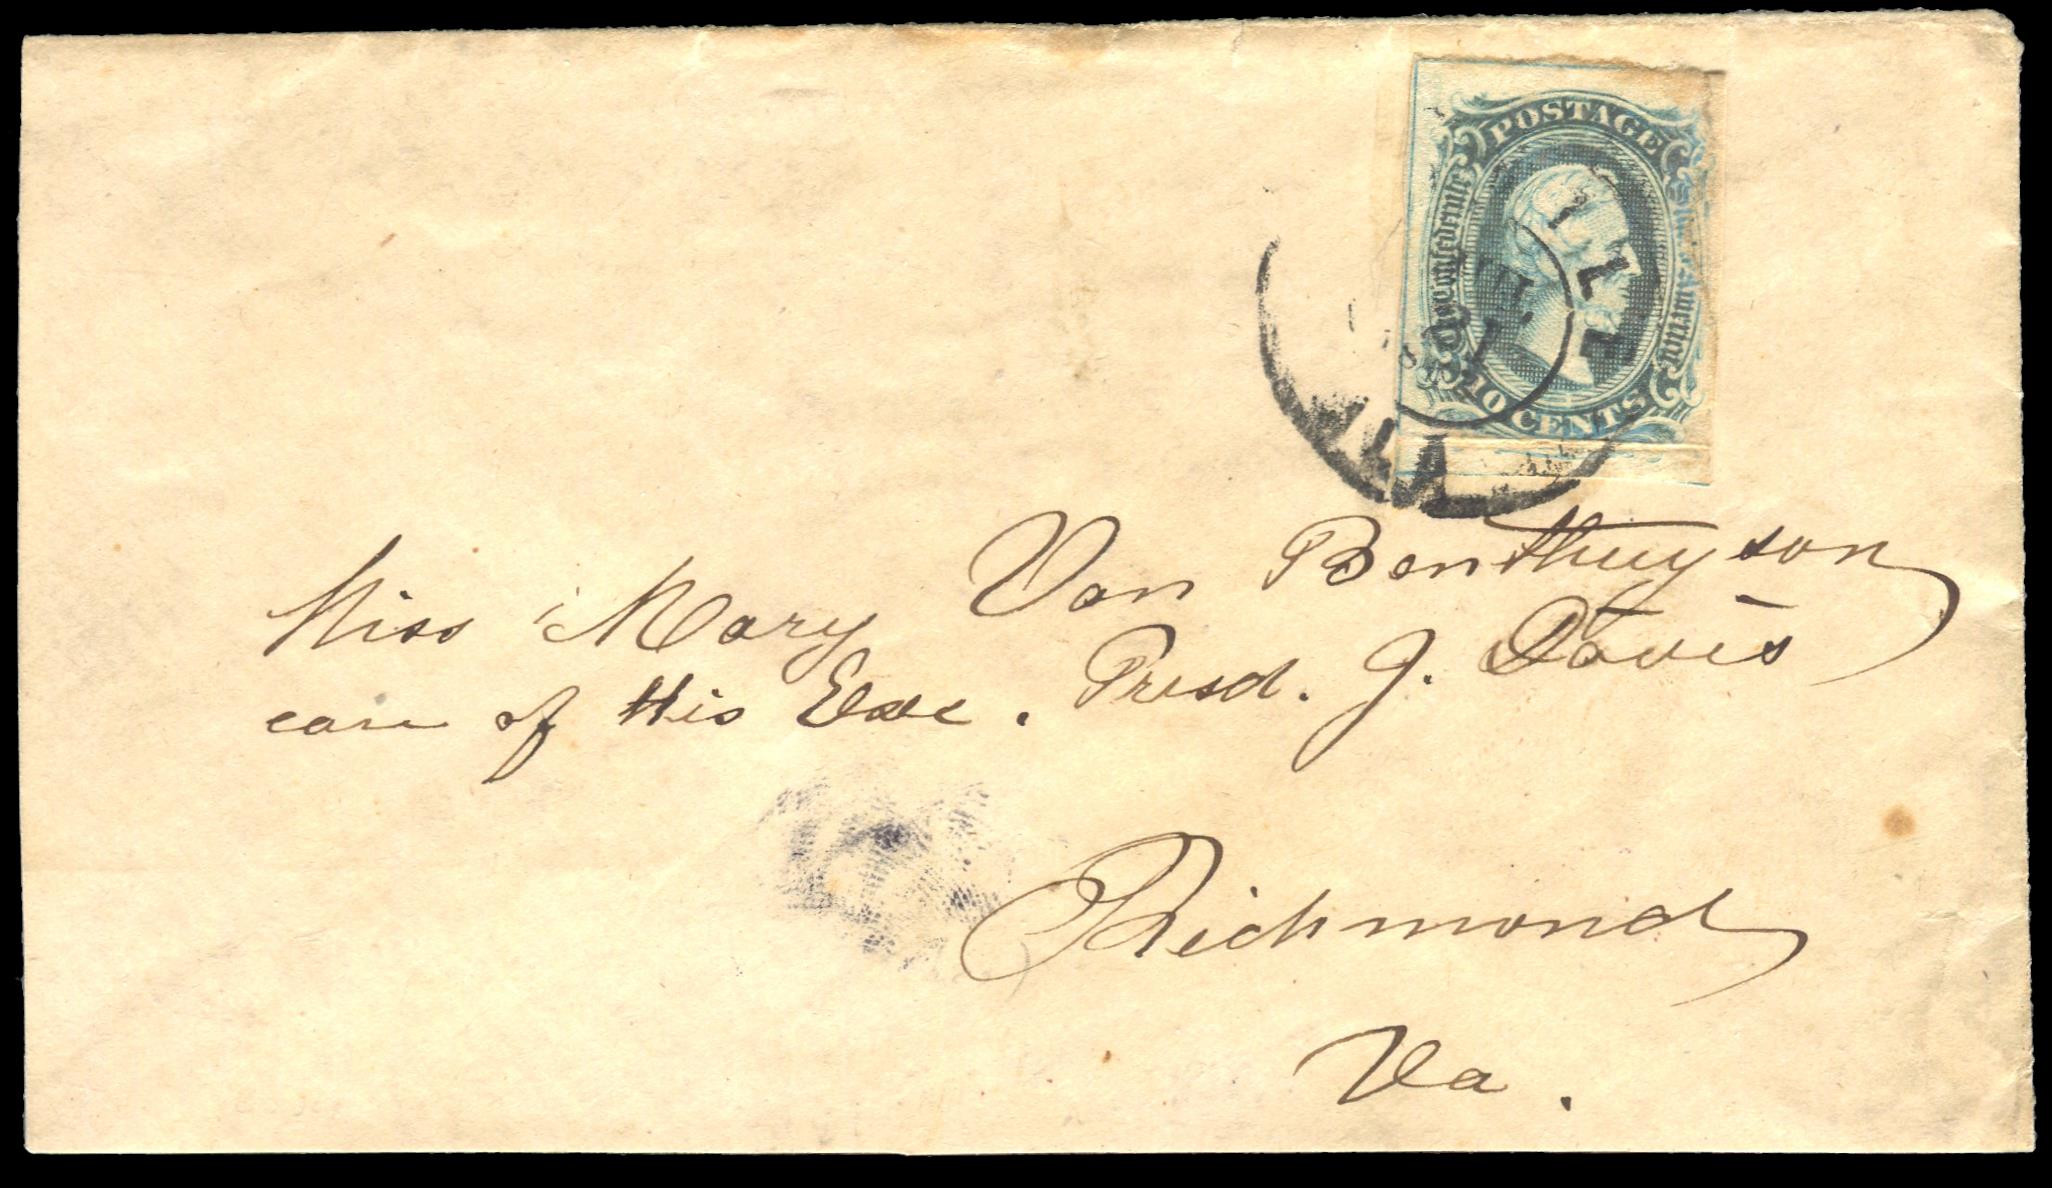 POSTAGE
The Confederate States of America
10 CENTS
Miss Mary Van Benthuyson
care of His Exc. Presd. J. Davis
Richmond
Va.